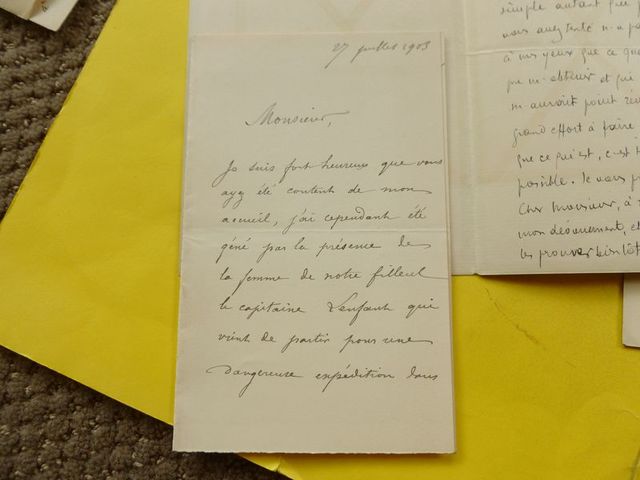 27 juillet 1903
Monsieur,
Je suis fort heureux que vous
ayez été content de mon
accueil, j'ai cependant été
géné par la présence de
la femme de notre filleul
le capitaine Lenfant qui
vient de partir pour une
dangereuse expédition dans
simple autant que
vous avez tenté n'a
à mes yeux que ce que
et qui
m'auroit point
grand effort à faire
que ce qui est, c'est
possible. Je vous
Cher Monsieur, à
mon dévouement, et
les prouver bientôt